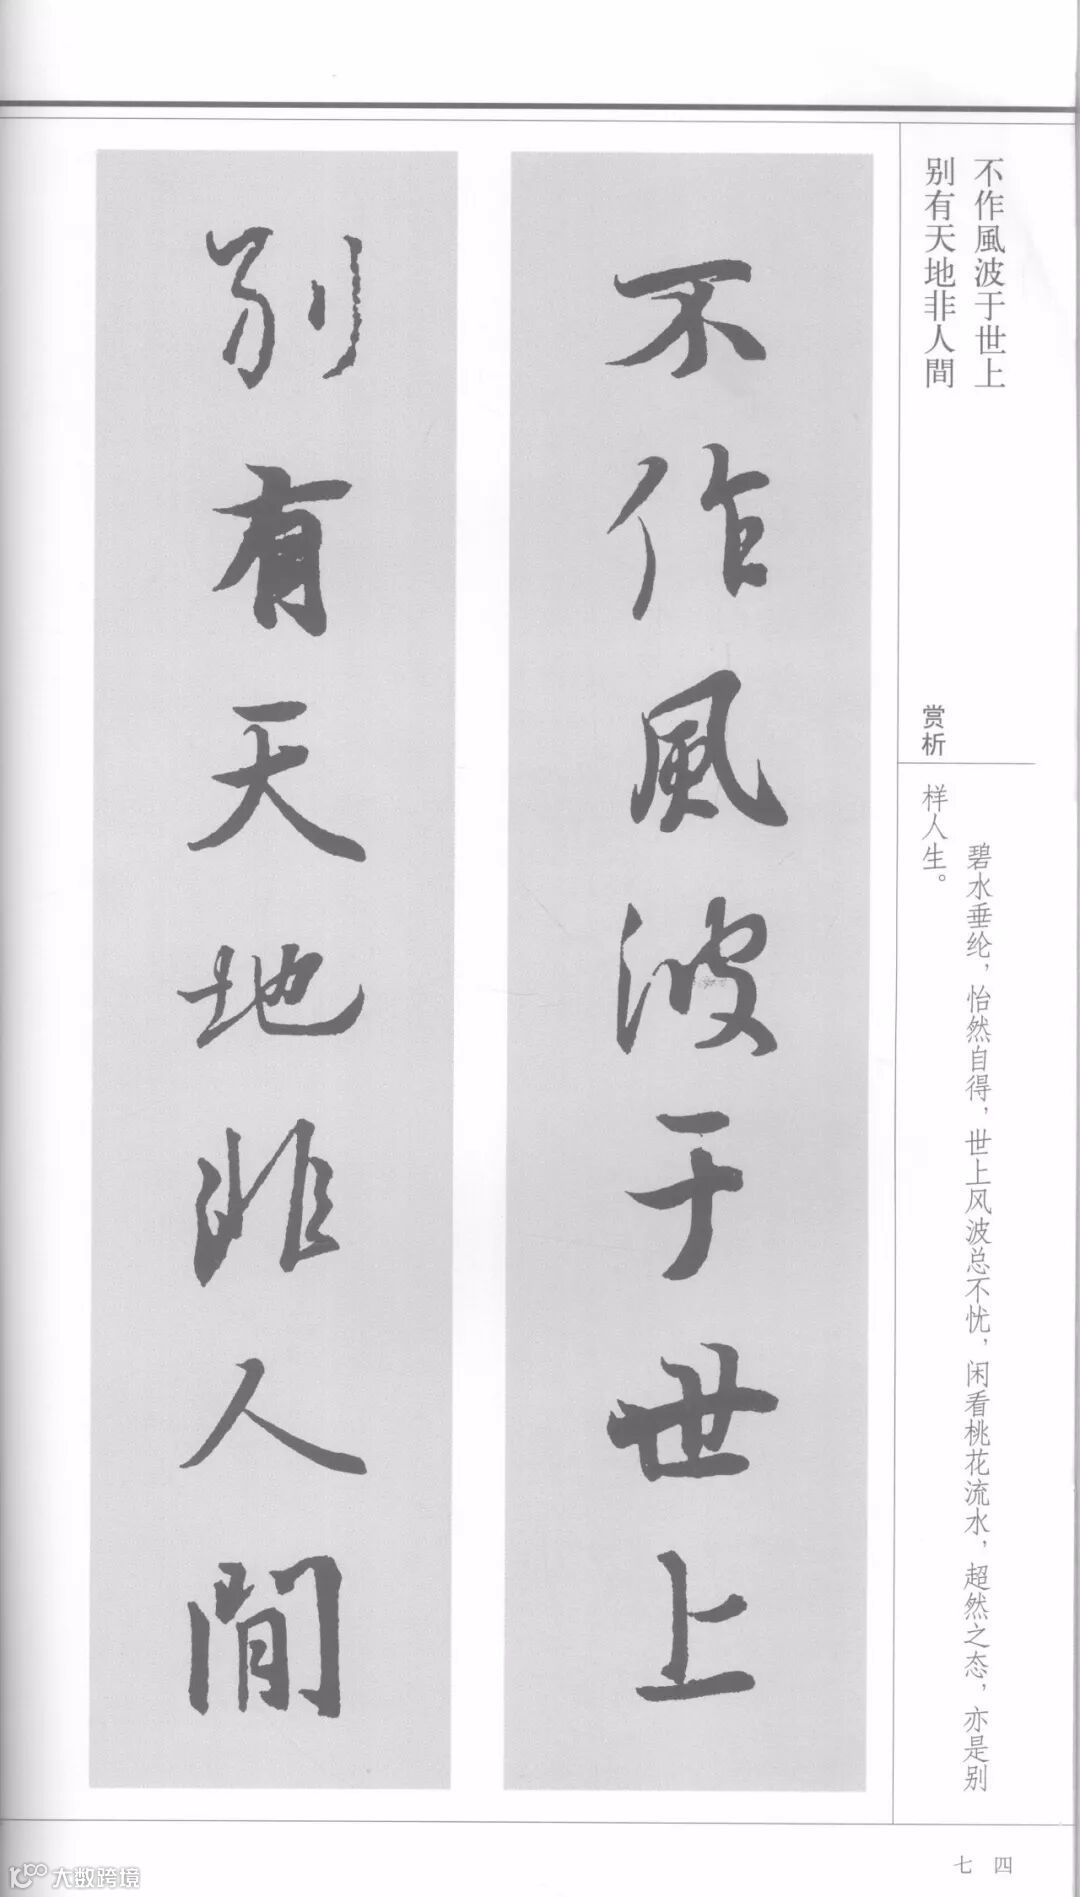 不作風波于世上
别有天地非人間
赏析
碧水垂纶，怡然自得，世上风波总不忧，闲看桃花流水，超然之态，亦是别
样人生。
不作風波于世上
别有天地非人間
七四
大数跨境